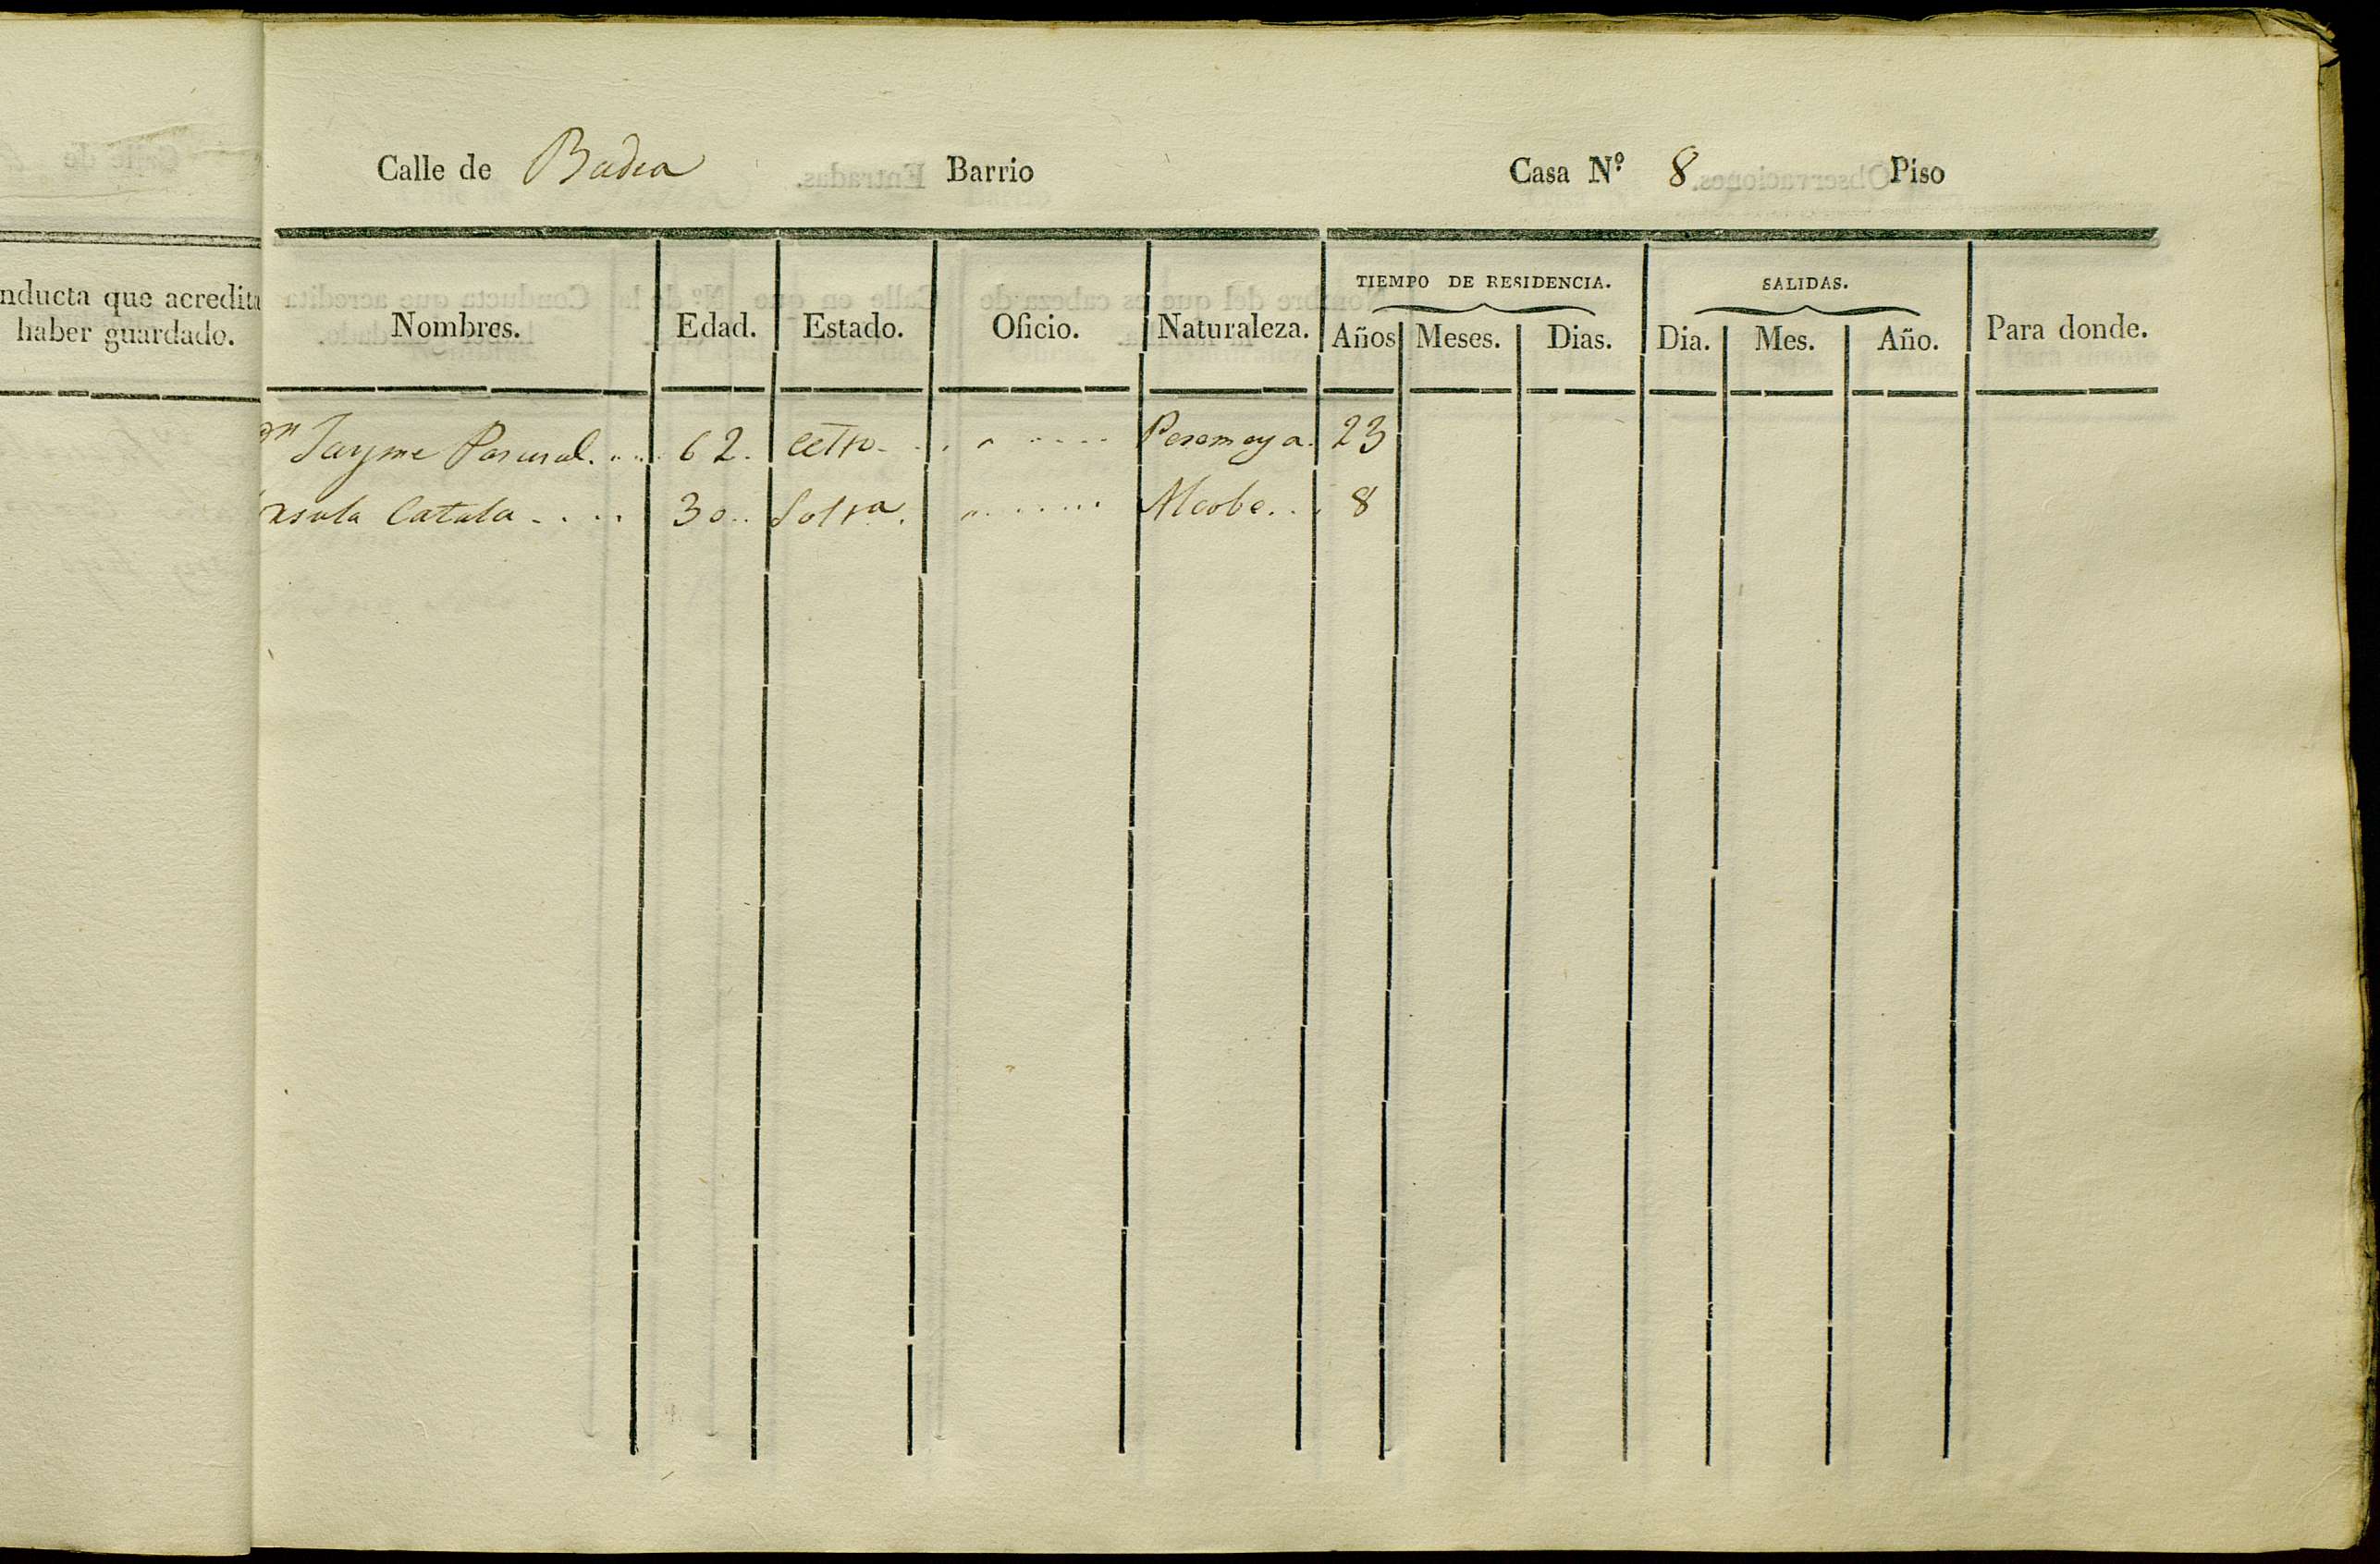 Calle de Badia Barrio Casa Nº 8 Piso
nducta que acredita
haber guardado.
TIEMPO DE RESIDENCIA. SALIDAS.
Nombres. Edad. Estado. Oficio. Naturaleza. Años Meses. Dias. Dia. Mes. Año. Para donde.
Dn Jayme Pascual..... 62. Peramaya. 23
rsula Catala.... 30.. Soltra. Alcobe... 8